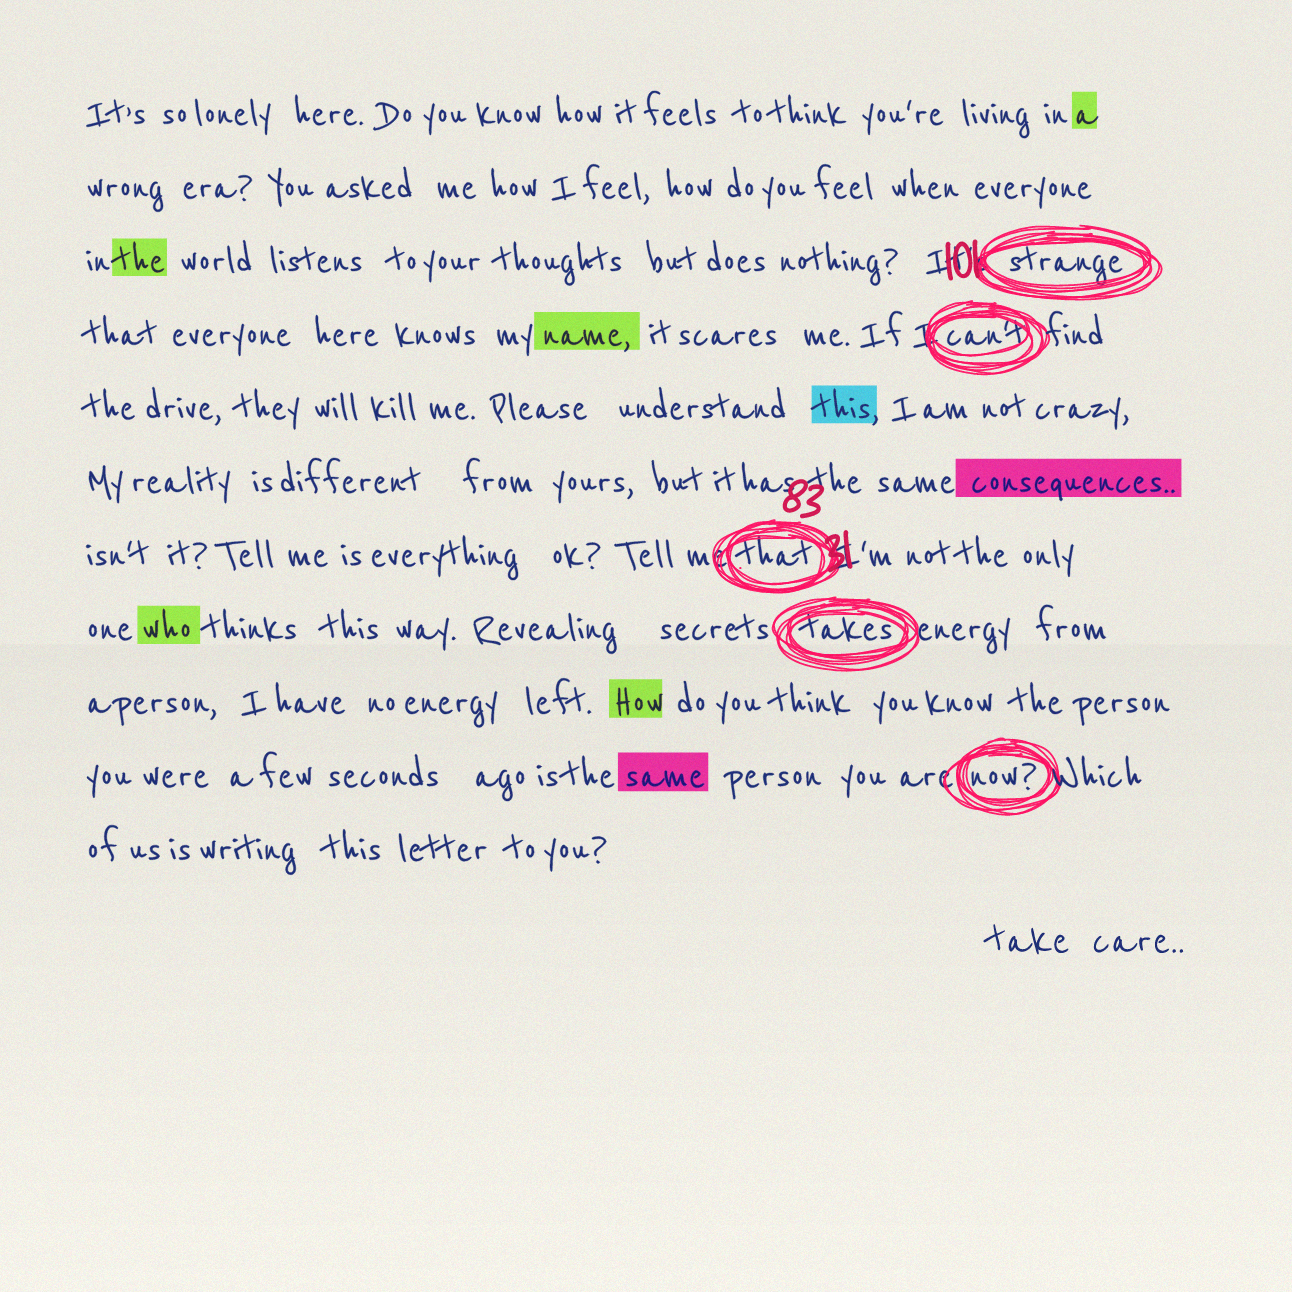 It's so lonely here. Do you know how it feels to think you're living in a
wrong era? You asked me how I feel, how do you feel when everyone
in the world listens to your thoughts but does nothing? It's 101 strange
that everyone here knows my name, it scares me. If I can't find
the drive, they will kill me. Please understand this, I am not crazy,
My reality is different from yours, but it has the same consequences..
83
isn't it? Tell me is everything ok? Tell me that 31 I'm not the only
one who thinks this way. Revealing secrets takes energy from
a person, I have no energy left. How do you think you know the person
you were a few seconds ago is the same person you are now? Which
of us is writing this letter to you?
take care..